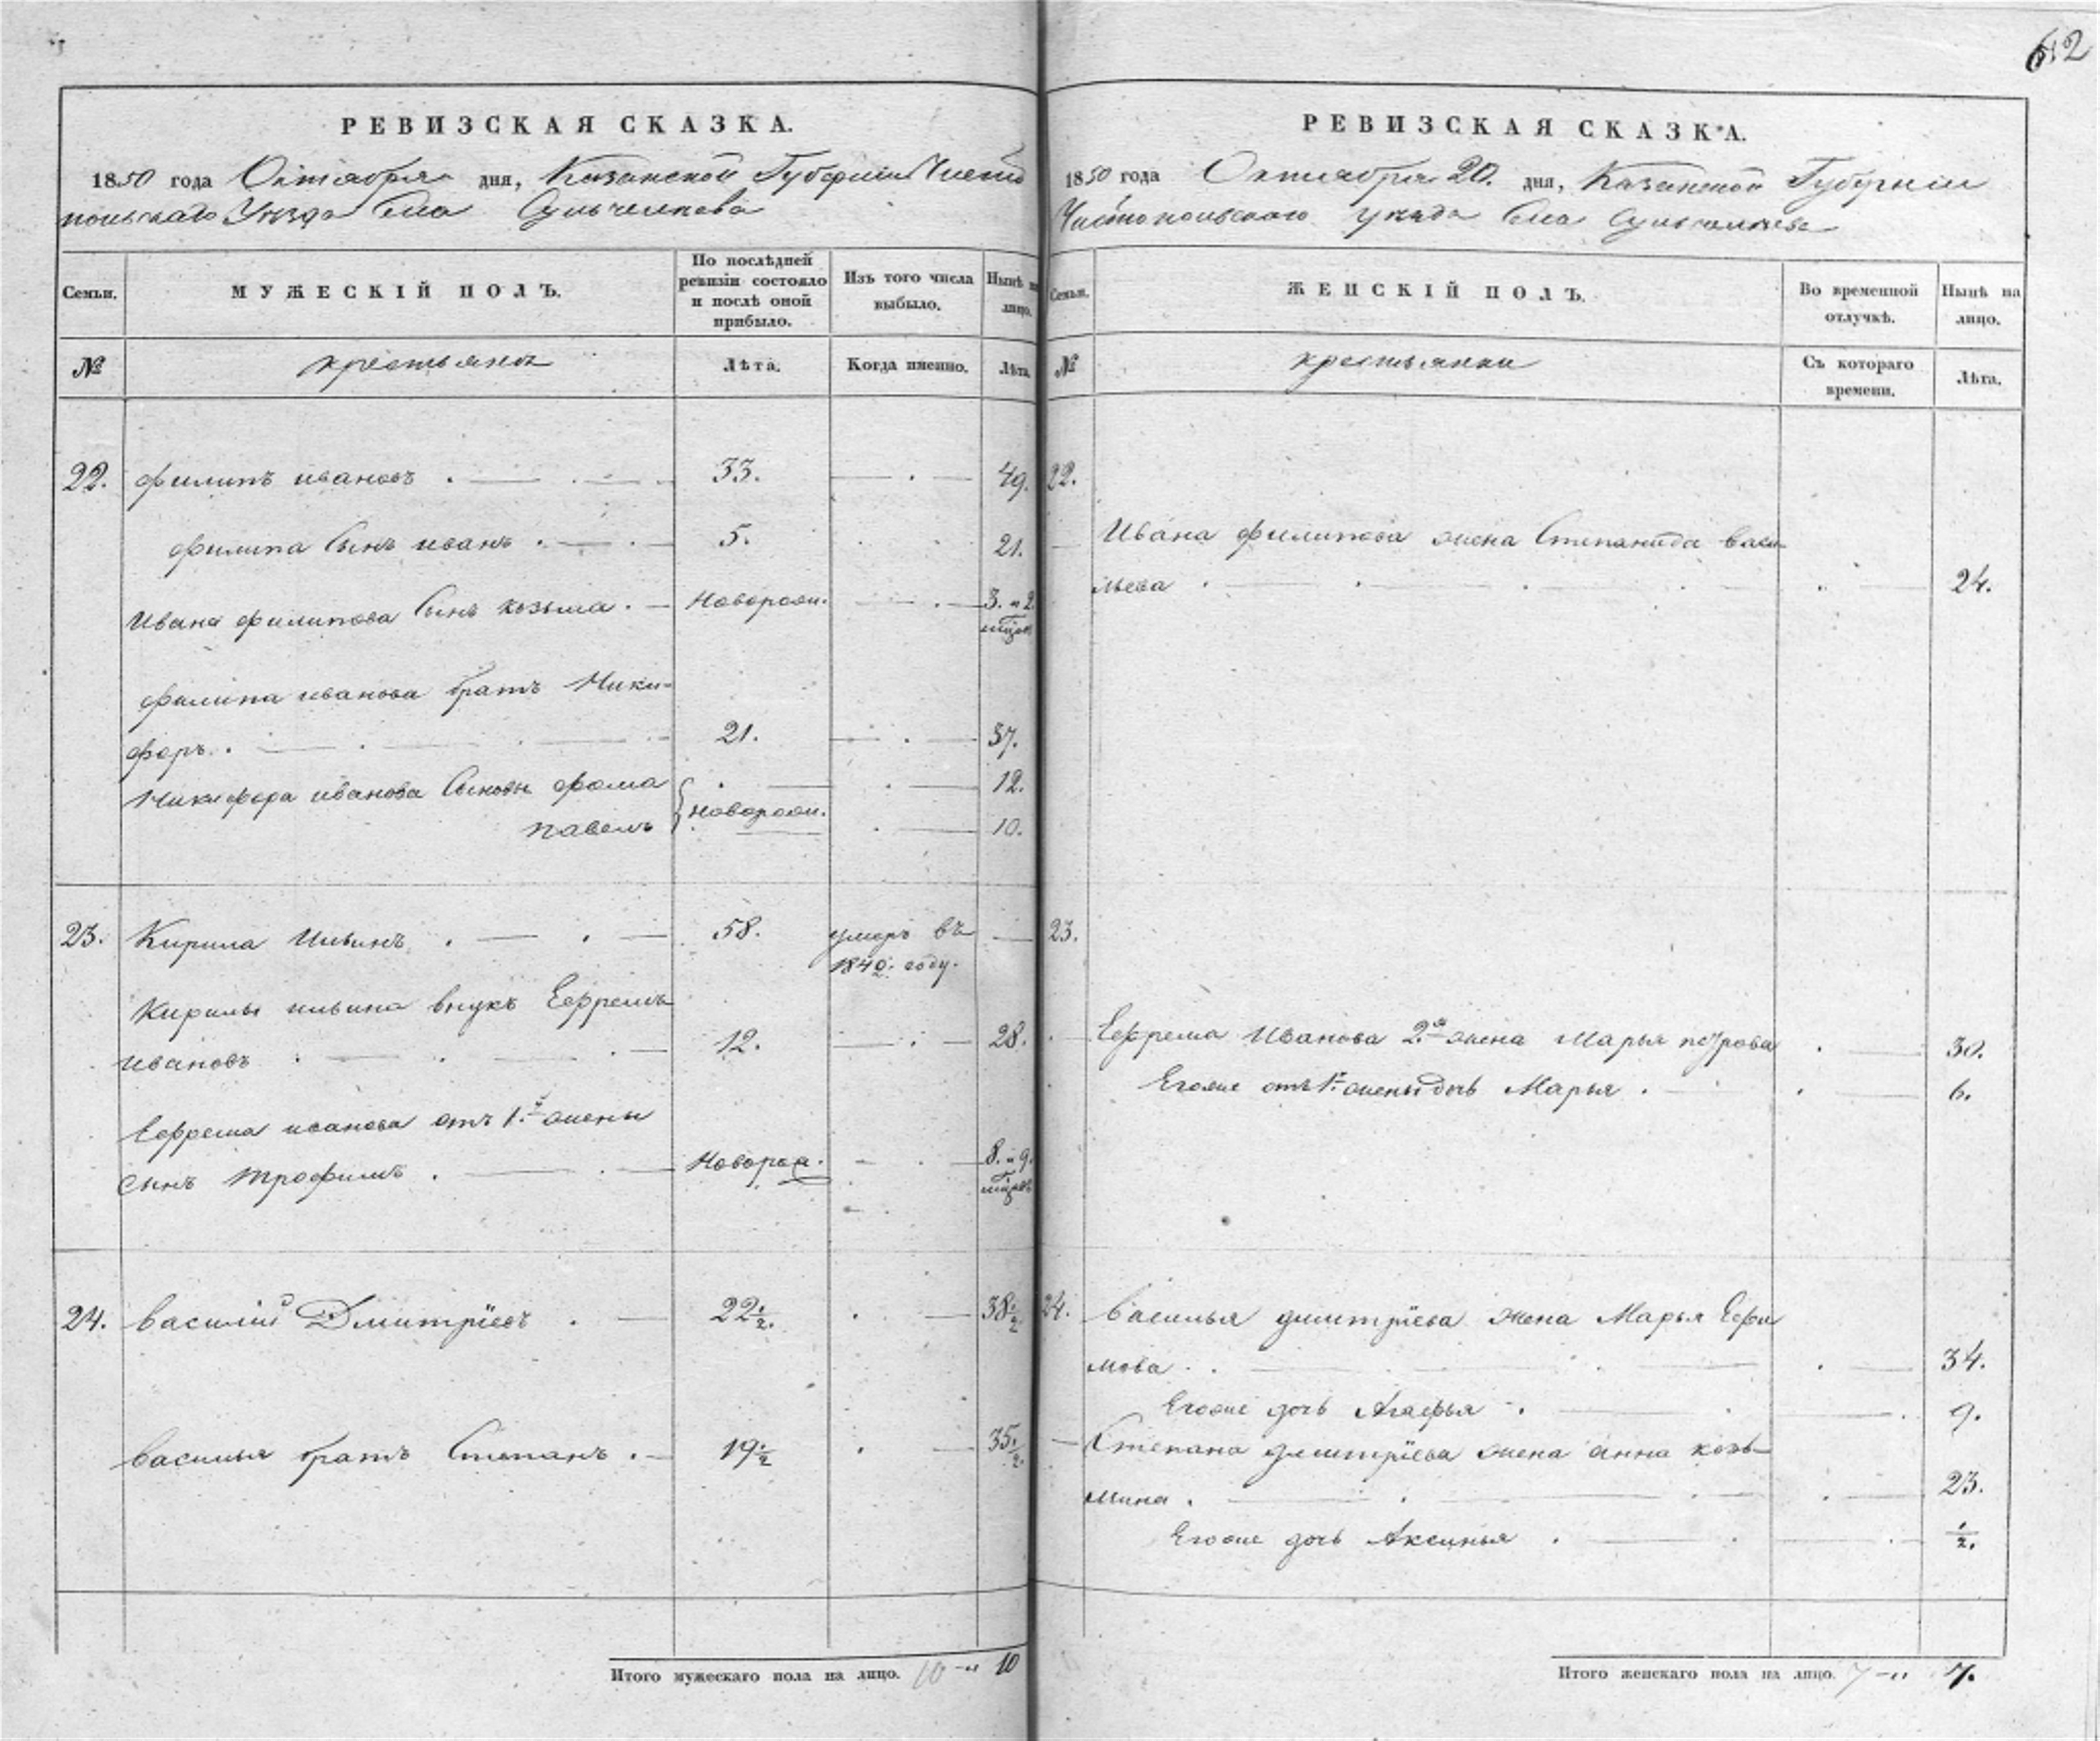 62
РЕВИЗСКАЯ СКАЗКА.
1850 года Октября дня, Казанской Губернiи Чисто
польскаго Уѣзда Села Сульчелеева
Семьи.
МУЖЕСКІЙ ПОЛЪ.
По послѣдней ревизіи состояло и послѣ оной прибыло.
Изъ того числа выбыло.
Нынѣ на лицо.
№
крестьяне
Лѣта.
Когда именно.
Лѣта.
22. филипъ ивановъ . 33. 49.
филипа Сынъ иванъ . 5. 21.
Ивана филипова Сынъ козьма . Новорож. 3. и 2
мѣсяц
филипа иванова братъ Ники-
форъ . 21. 37.
Никифора иванова Сыновья фома 12.
павелъ Новорож. 10.
23. Кирила Ильинъ . 58. умеръ въ
1840. году.
Кирилы ильина внукъ Ефремъ
ивановъ 12. 28.
Ефрема иванова отъ 1й жены
сынъ трофимъ . Новорож. 8. и 9.
мѣсяц
24. василій Дмитріевъ . 22 1/2. 38 1/2
василья братъ Степанъ . 19 1/2 35 1/2
Итого мужескаго пола на лицо. 10 -" 10
РЕВИЗСКАЯ СКАЗКА.
1850 года Октября 20. дня, Казанской Губернiи
Чистопольского уѣзда Села Сульчелеева
Семьи.
ЖЕНСКІЙ ПОЛЪ.
Во временной отлучкѣ.
Нынѣ на лицо.
№
крестьянки
Съ котораго времени.
Лѣта.
22.
Ивана филипова жена Степанида васи
льева 24.
23.
Ефрема Иванова 2я жена Марья петрова 30.
Егоже отъ 1й жены дочь Марья . 6.
24. василья дмитріева жена Марья Ефи
мова 34.
Егоже дочь Агафья . 9.
Степана дмитріева жена анна козь
мина . 23.
Егоже дочь Аксинья . 1/2.
Итого женскаго пола на лицо. 7 -" 7.